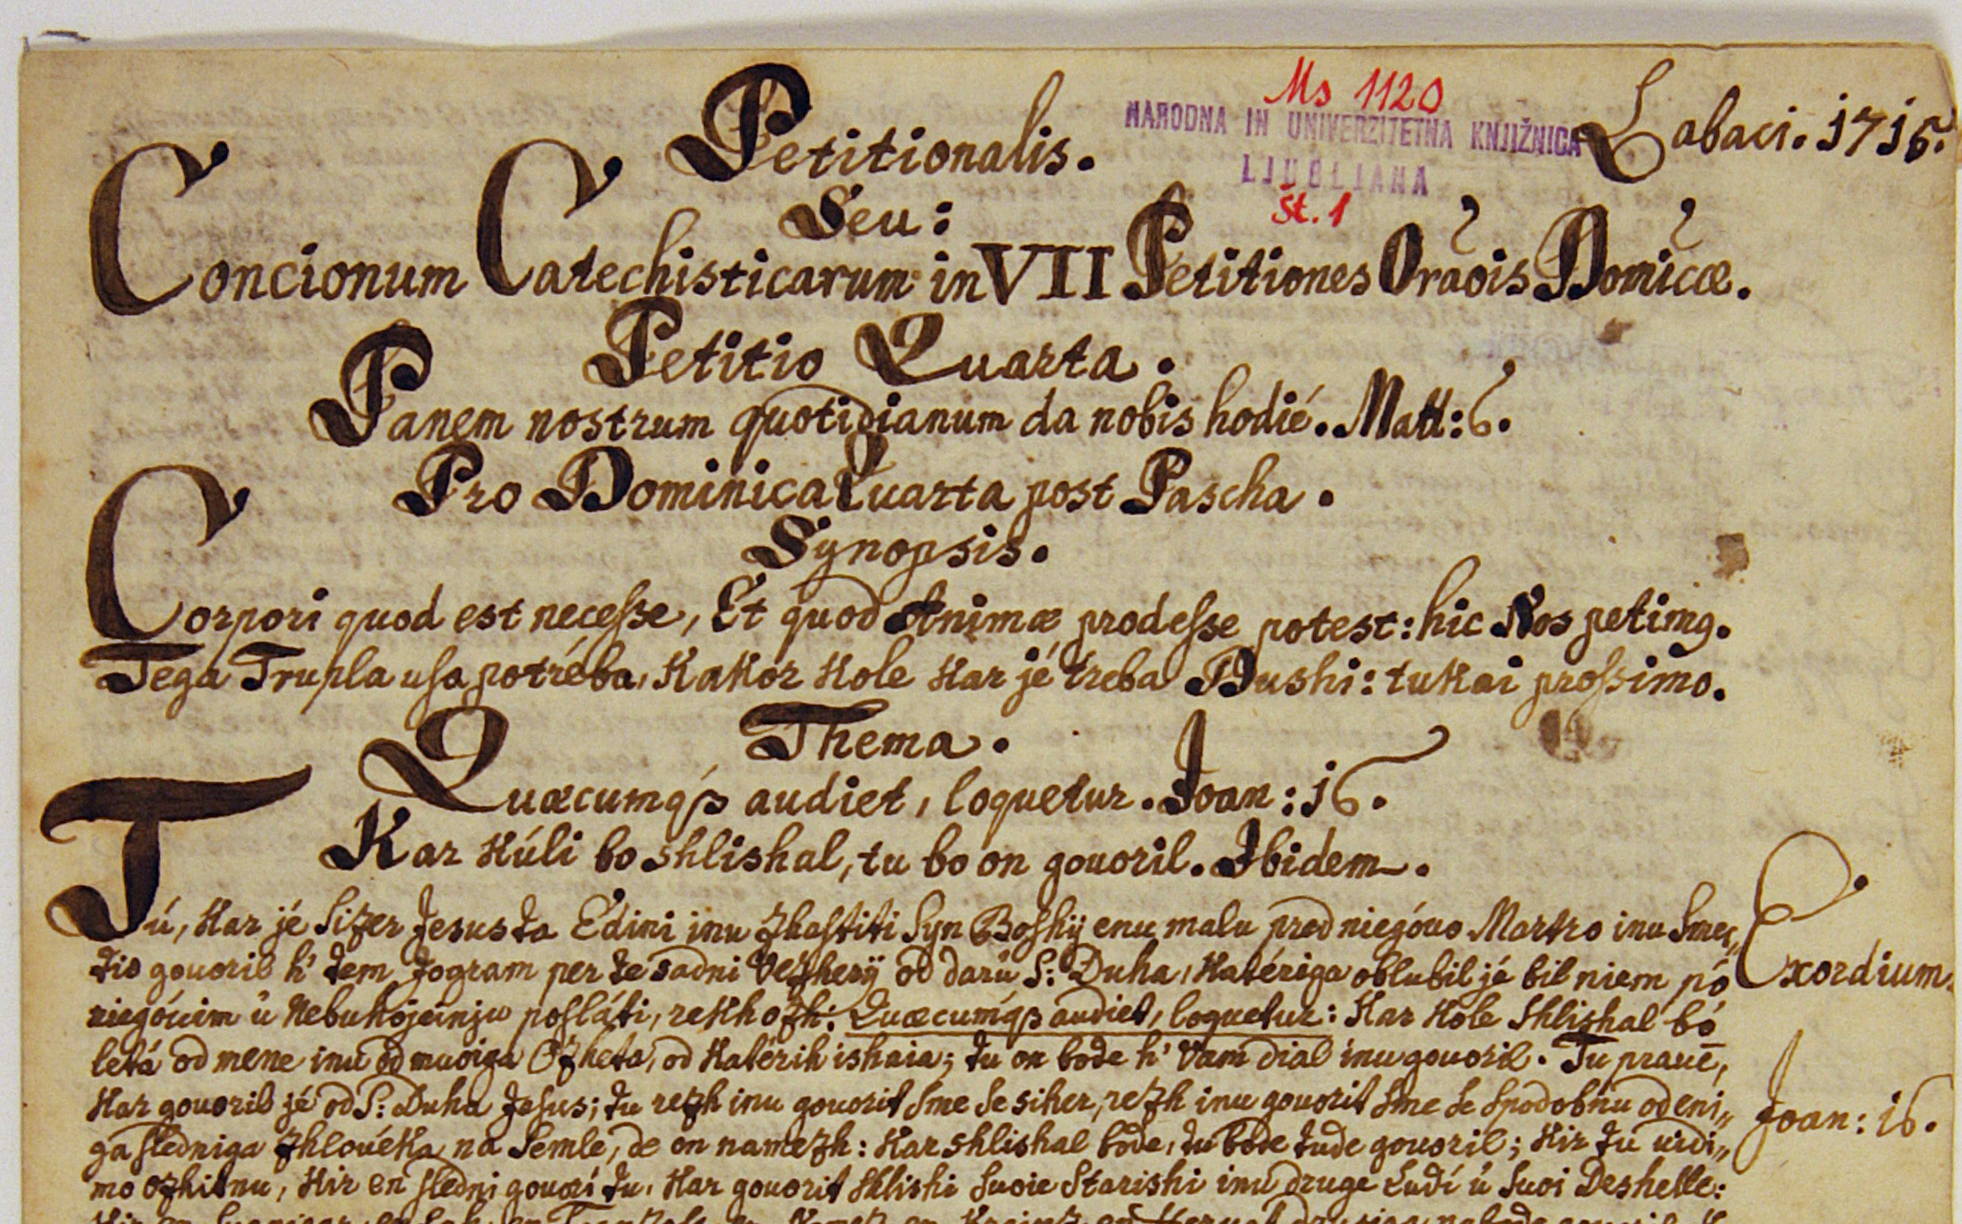 Ms 1120
NARODNA IN UNIVERZITETNA KNJIŽNICA
LJUBLJANA
Št. 1
Labaci. 1715.
Petitionalis.
Seu:
Concionum Catechisticarum in VII Petitiones Oraõis Domĩcæ.
Petitio Quarta.
Panem nostrum quotidianum da nobis hodié. Matt: 6.
Pro Dominica Quarta post Pascha.
Synopsis.
Corpori quod est necesse, Et quod Animæ prodesse potest: hic Nos petimꝯ.
Tega Trupla usa potréba, Kakor Kole Kar jé treba Dushi: tukai prossimo.
Thema.
Quæcumqꝫ audiet, loquetur. Joan: 16.
Kar Kúli bo shlishal, tu bo on gouoril. Ibidem.
Tú, Kar jé sizer Jesus ta Edini inu zhastiti Syn Boshÿ enu malu pred niegóuo Martro inu Smer,,
tio gouoril h' tem Jogram per te sadni vezherÿ od darú S: Duha, Katériga oblubil jé bil niem pó
niegóuim ú Nebuhojeinju posláti, rekhozh: Quæcumqꝫ audiet, loquetur: Kar Kole Shlishal bó
letá od mene inu od muoiga Ozheta, od Katérih ishaia; tu on bode h' vam dial inu gouoril. Tu prauē,
Kar gouoril jé od S: Duha Jesus; tu rezh inu gouorit sme se siher, rezh inu gouorit sme se spodobnu od eni,,
ga sledniga zhlovéka na Semle, de on namezh: Kar shlishal bode, tu bode tude gouoril; Kir tu uidi,,
mo ozhitnu, Kir en sledni gouorí tu, Kar gouorit shlishi suoie Starishi inu druge Ludí ú suoi Deshelle:
Exordium.
Joan: 16.